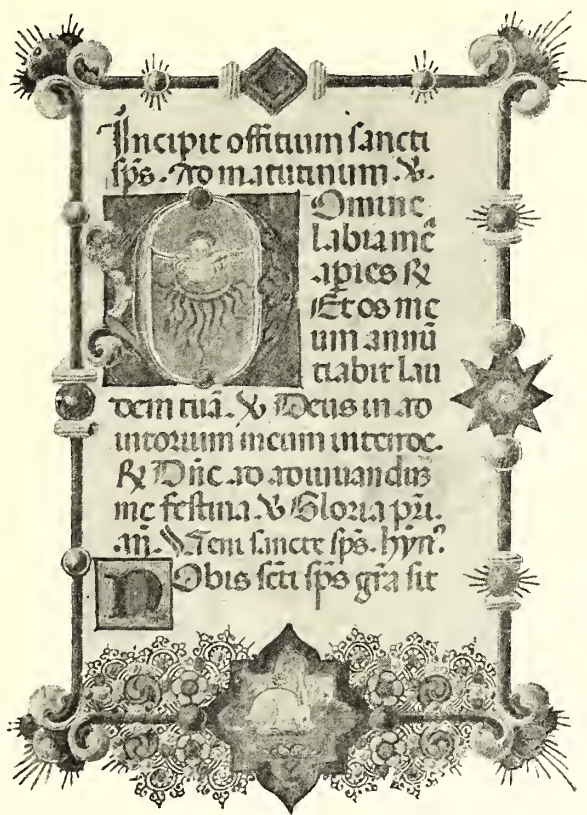 Incipit offitium sancti
sp̄s. Ad matutinum ℣.
Domine
labia mē
apies ℟
Et os me
um annū
tiabit lau
dem tuā. ℣ Deus in ad
iutorium meum intende.
℟ Dn̄e ad adiuuandū
me festina ℣ Gloria pr̄i.
.añ. Veni sancte sp̄s. hyn̄.
Nobis scti sp̄s gr̄a sit